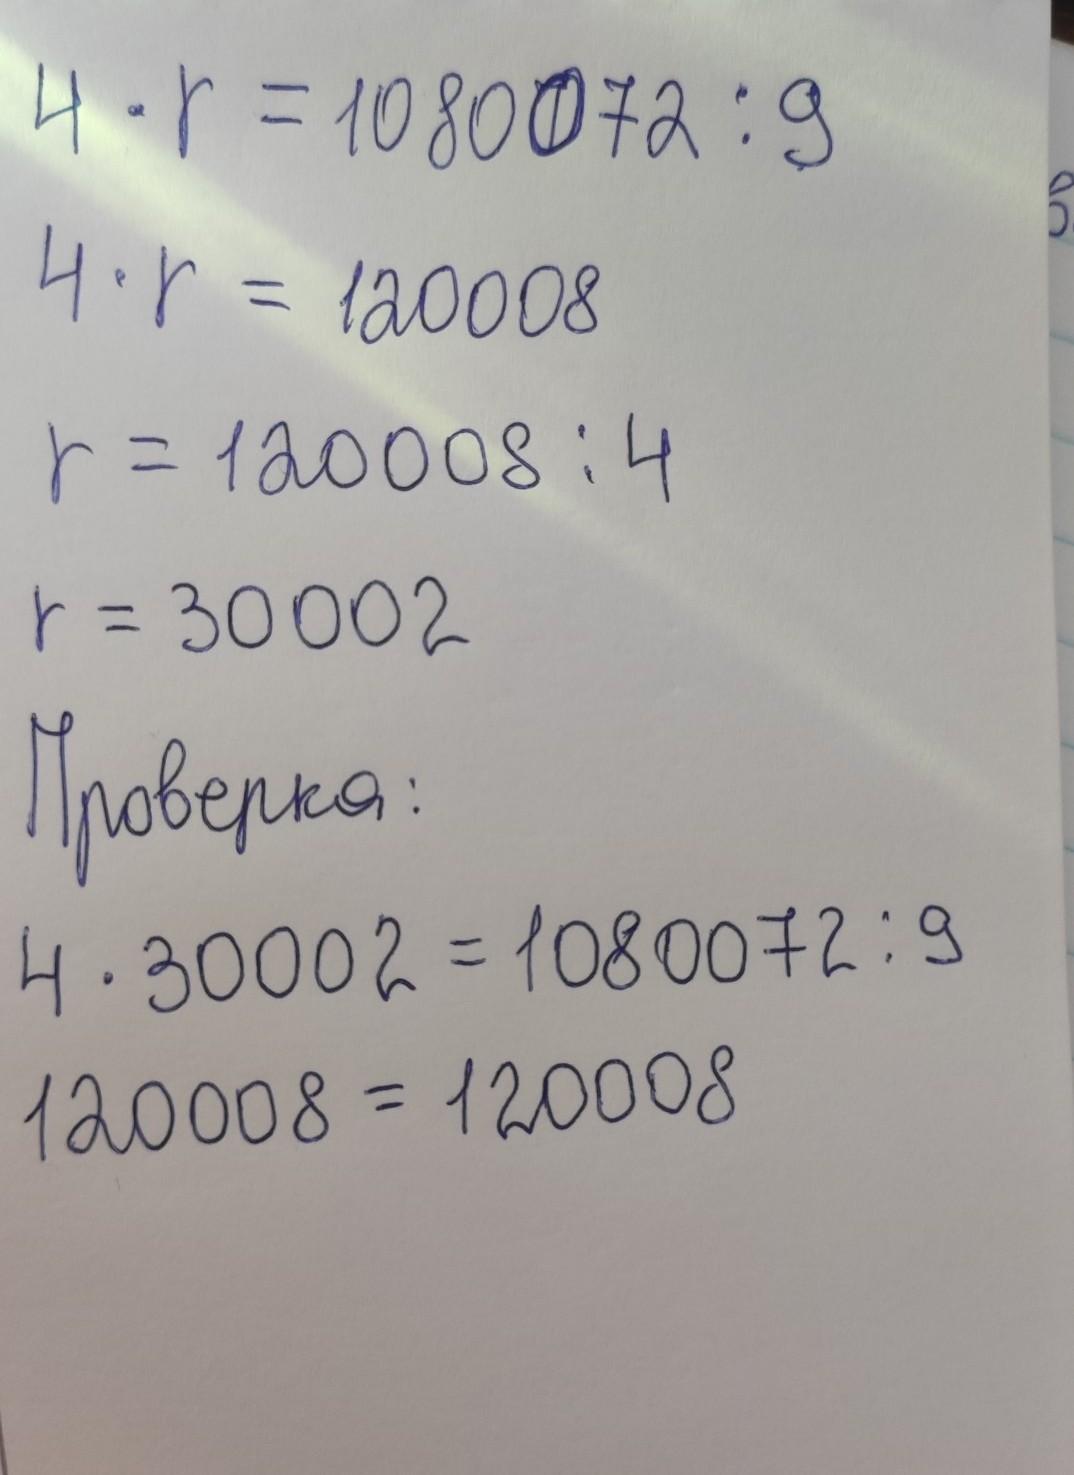 4 · r = 1080072 : 9
4 · r = 120008
r = 120008 : 4
r = 30002
Проверка:
4 · 30002 = 1080072 : 9
120008 = 120008